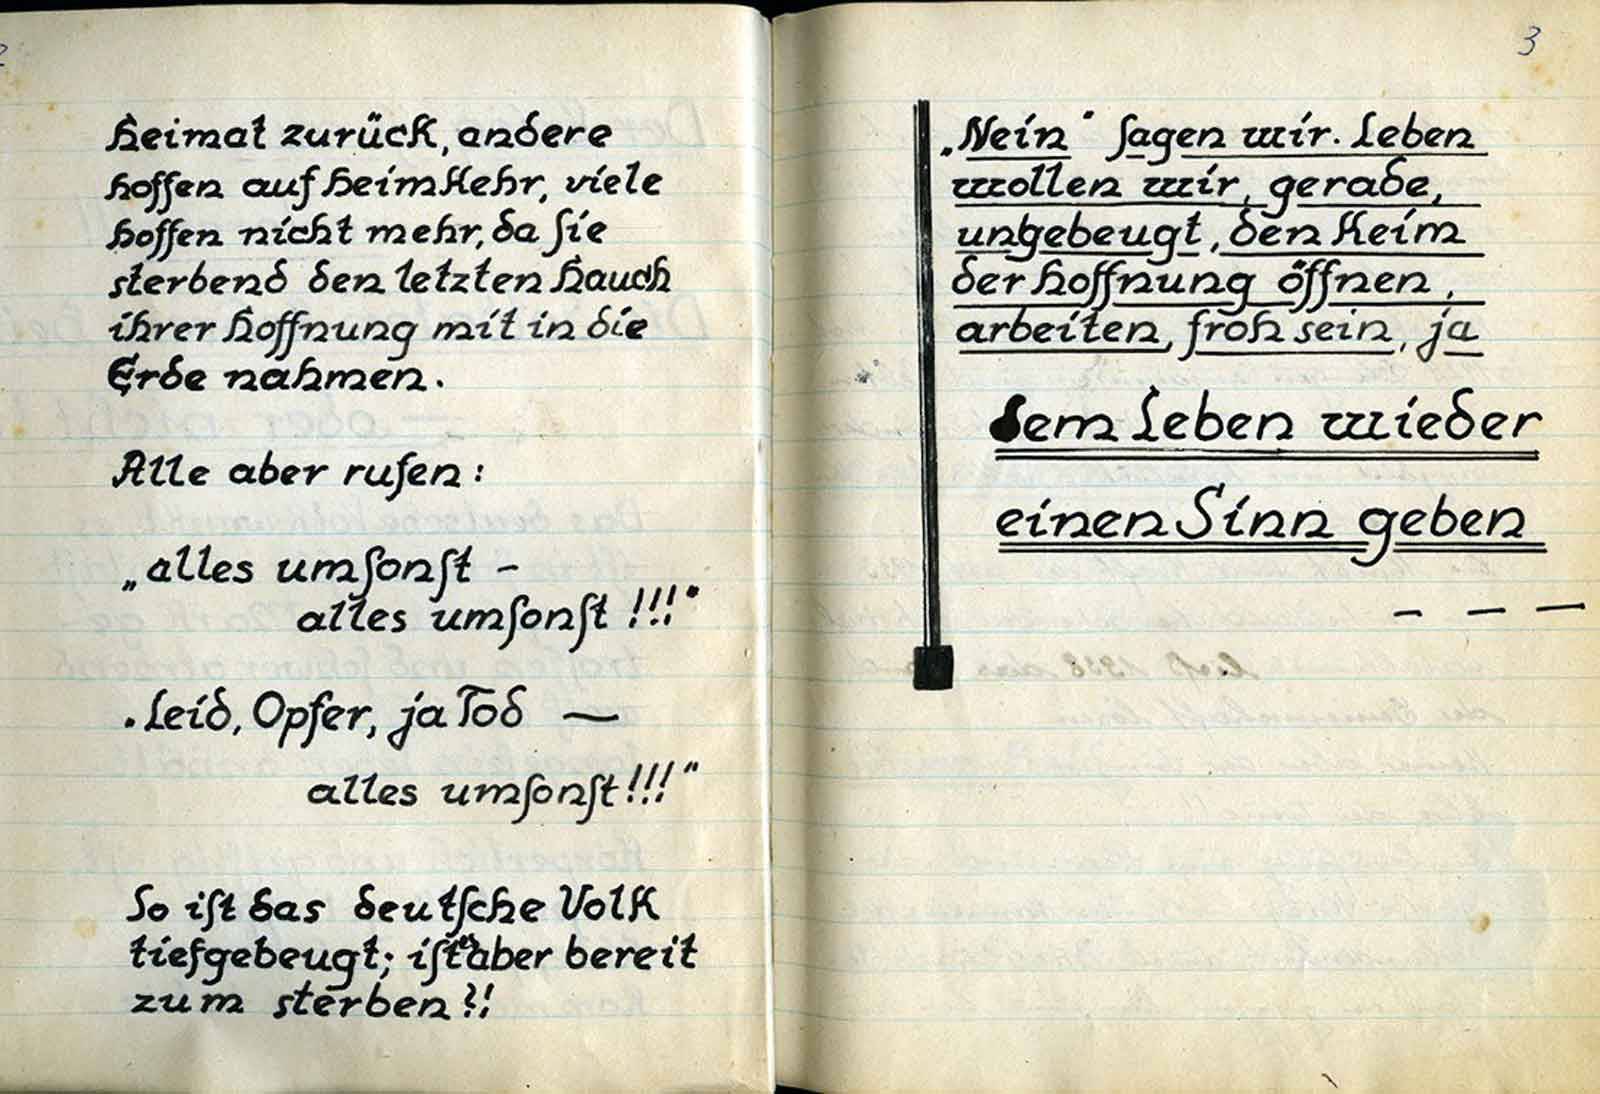 2
Heimat zurück, andere
hoffen auf Heimkehr, viele
hoffen nicht mehr, da sie
sterbend den letzten Hauch
ihrer Hoffnung mit in die
Erde nahmen.
Alle aber rufen:
„alles umſonſt –
alles umſonſt!!!"
„Leid, Opfer, ja Tod —
alles umſonſt!!!"
So iſt das deutſche Volk
tiefgebeugt; iſt es aber bereit
zum sterben?!
3
„Nein" ſagen wir. Leben
wollen wir, gerade,
ungebeugt, den Keim
der Hoffnung öffnen,
arbeiten, froh sein, ja
dem Leben wieder
einen Sinn geben
– – –